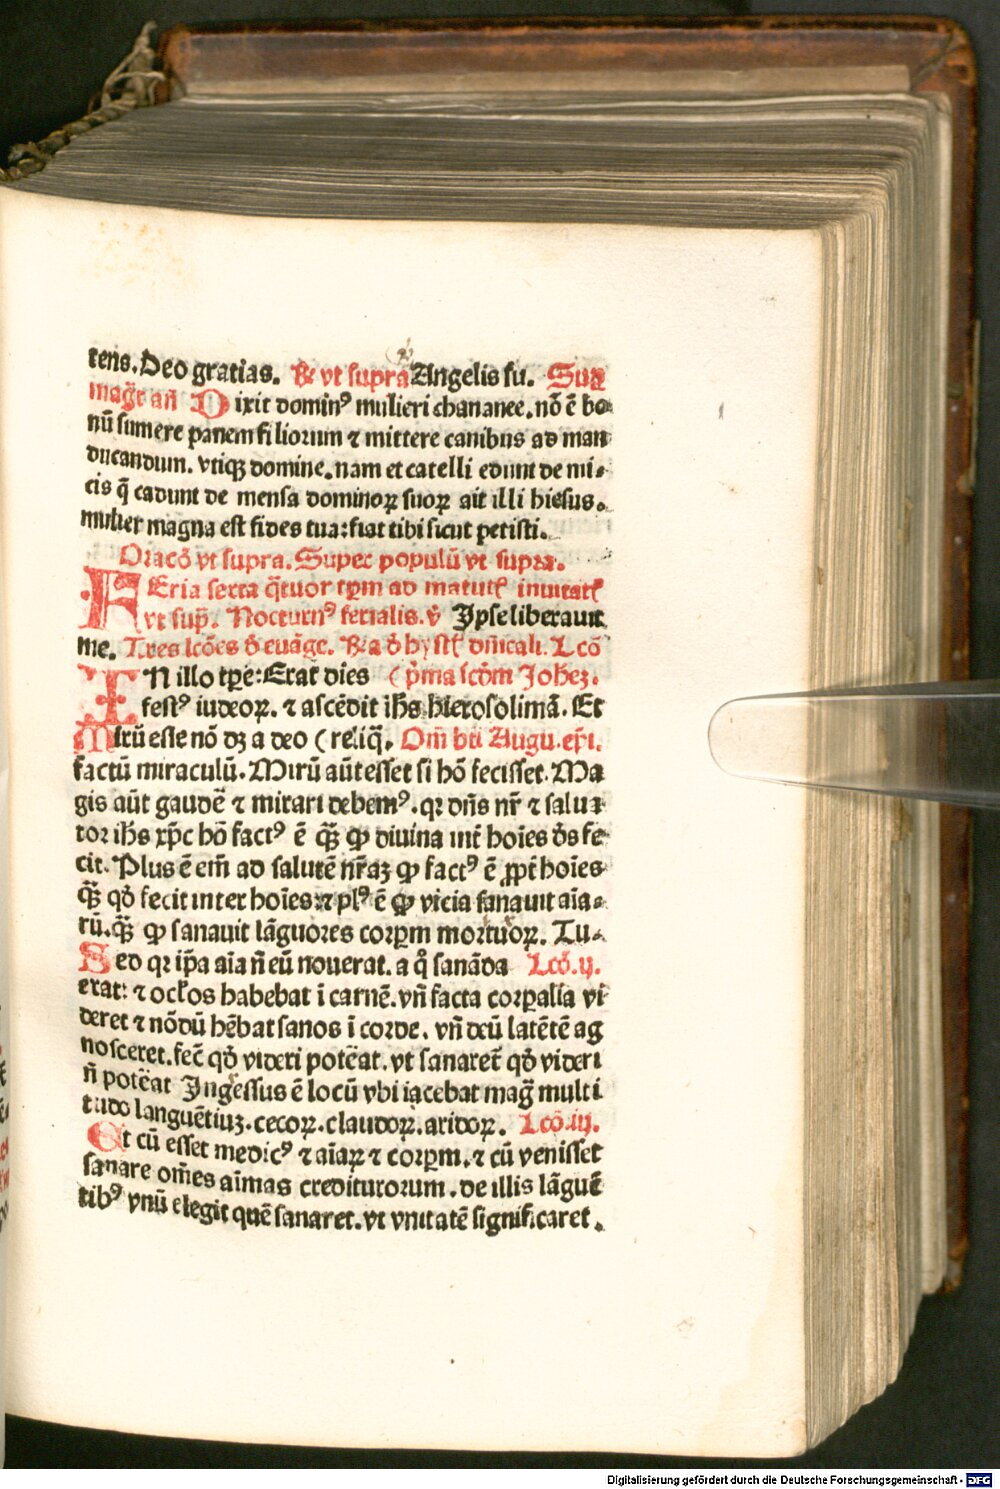 tens. Deo gratias. ℞ vt supra Angelis su. Sup
mag̃t añ Dixit dominꝰ mulieri chananee. nõ ē bo
nū sumere panem filiorum ⁊ mittere canibus ad man
ducandum. vtiqꝫ domine. nam et catelli edunt de mi-
cis q̃ cadunt de mensa dominoꝝ suoꝝ ait illi hiesus.
mulier magna est fides tua: fiat tibi sicut petisti.
Oracõ vt supra. Super populū vt supra.
FEria sexta q̃tuor tp̄m ad matut̃ inuitat̃
vt sup̃. Nocturnꝰ ferialis. v̄ Ipse liberauit
me. Tres lcões d̄ euãge. ℞a d̄ hyst̃ dn̄icali. Lcõ
IN illo tp̄e: Erat dies (p̄ma scd̄m Johēꝫ.
festꝰ iudeoꝝ. ⁊ ascēdit ih̄s hierosolimā. Et
Mirū esse nõ dꝫ a deo (reliq̃. Om̃ bt̄i Augu. ep̄i.
factū miraculū. Mirū aūt esset si hõ fecisset. Ma
gis aūt gaudē ⁊ mirari debemꝰ. qꝛ dn̄s nr̄ ⁊ salua
tor ih̄s xp̄c hõ factꝰ ē q̃ꝫ ꝙ diuina int̄ hoīes d̄s fe
cit. Plus ē em̄ ad salutē nr̄aꝫ ꝙ factꝰ ē ꝓpt̄ hoīes
q̃ꝫ qd̄ fecit inter hoīes: ⁊ plꝰ ē ꝙ vicia sanauit aīa-
rū. q̃ꝫ ꝙ sanauit lāguores corꝑm mortuoꝝ. Lcõ. ij.
Sed qꝛ ip̄a aīa n̄ eū nouerat. a q̊ sanāda
erat: ⁊ oc̄l'os habebat ī carnē. vn̄ facta corꝑalia vi
deret ⁊ nõdū hēbat sanos ī corde. vn̄ deū latētē ag
nosceret. fec̄ qd̄ videri potēat. vt sanaret̄ qd̄ videri
n̄ potēat Ingessus ē locū vbi iacebat mag̃ multi
tudo languētiuꝫ. cecoꝝ. claudoꝝ. aridoꝝ. Lcõ. iij.
Et cū esset medicꝰ ⁊ aīaꝝ ⁊ corꝑm. ⁊ cū venisset
sanare om̄es aīmas crediturorum. de illis lāguē
tibꝰ vnū elegit quē sanaret. vt vnitatē significaret.
Digitalisierung gefördert durch die Deutsche Forschungsgemeinschaft - DFG